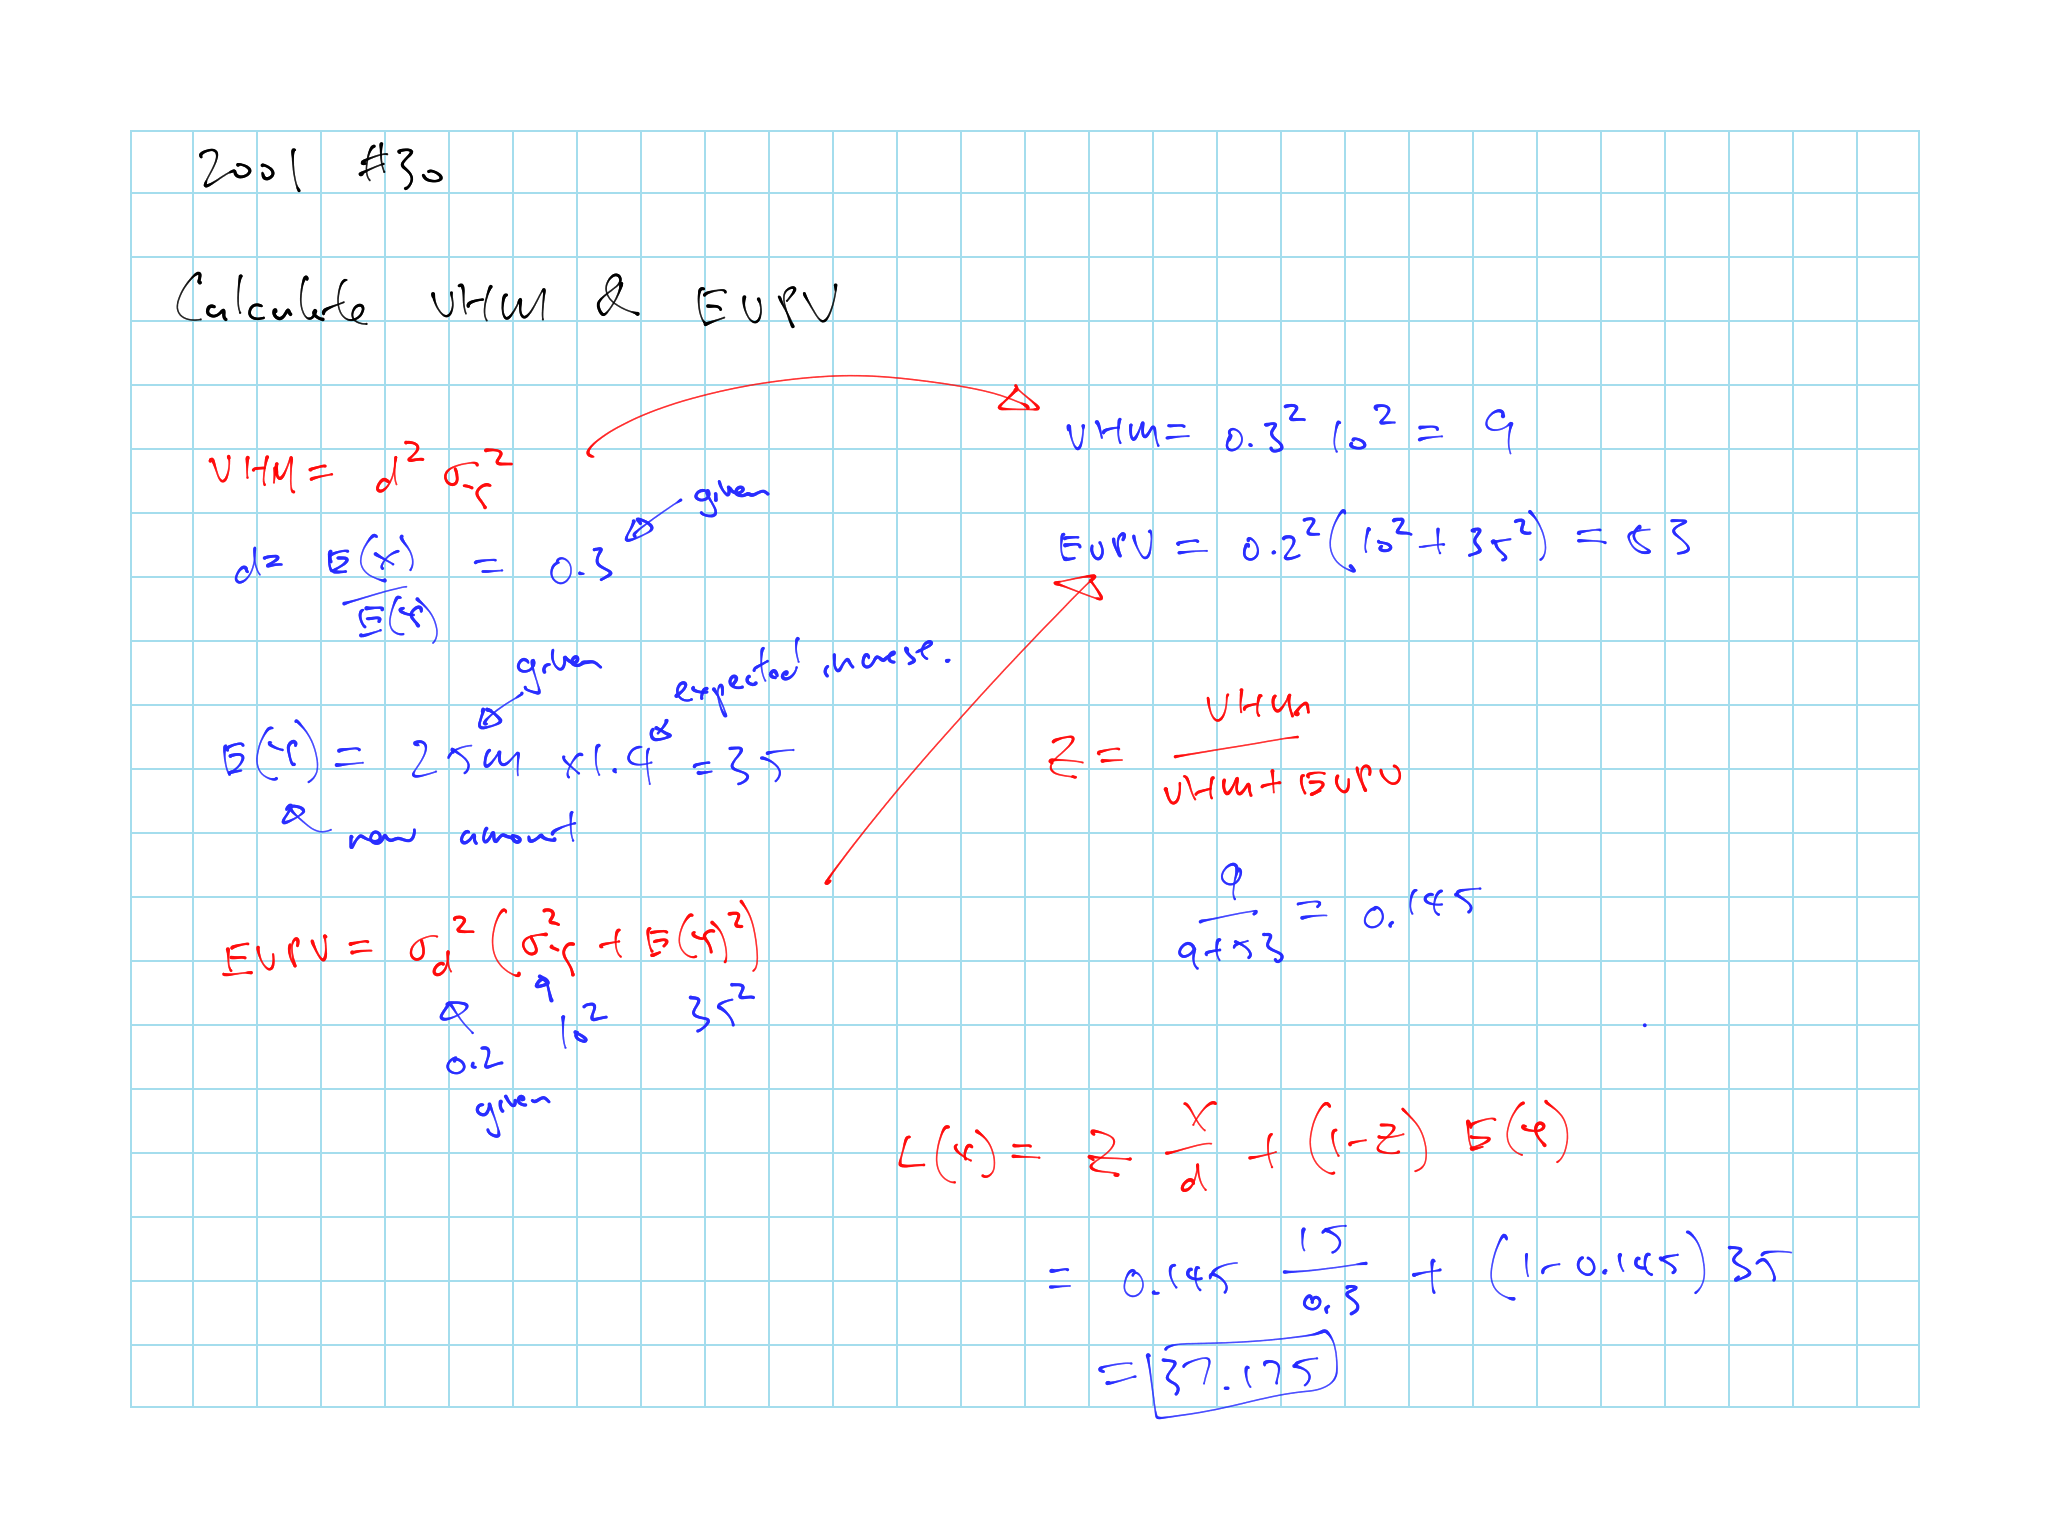 2001 #30
Calculate VHM & EVPV
VHM = d² σ_Y²
d = E(X)/E(Y) = 0.3
given
given
expected increase.
E(Y) = 25m × 1.4 = 35
new amount
EVPV = σ_d² (σ_Y² + E(Y)²)
10² 35²
0.2
given
VHM = 0.3² 10² = 9
EVPV = 0.2² (10² + 35²) = 53
Z = VHM/(VHM + EVPV)
9/(9+53) = 0.145
L(x) = Z X/d + (1-Z) E(Y)
= 0.145 15/0.3 + (1-0.145) 35
= 37.175